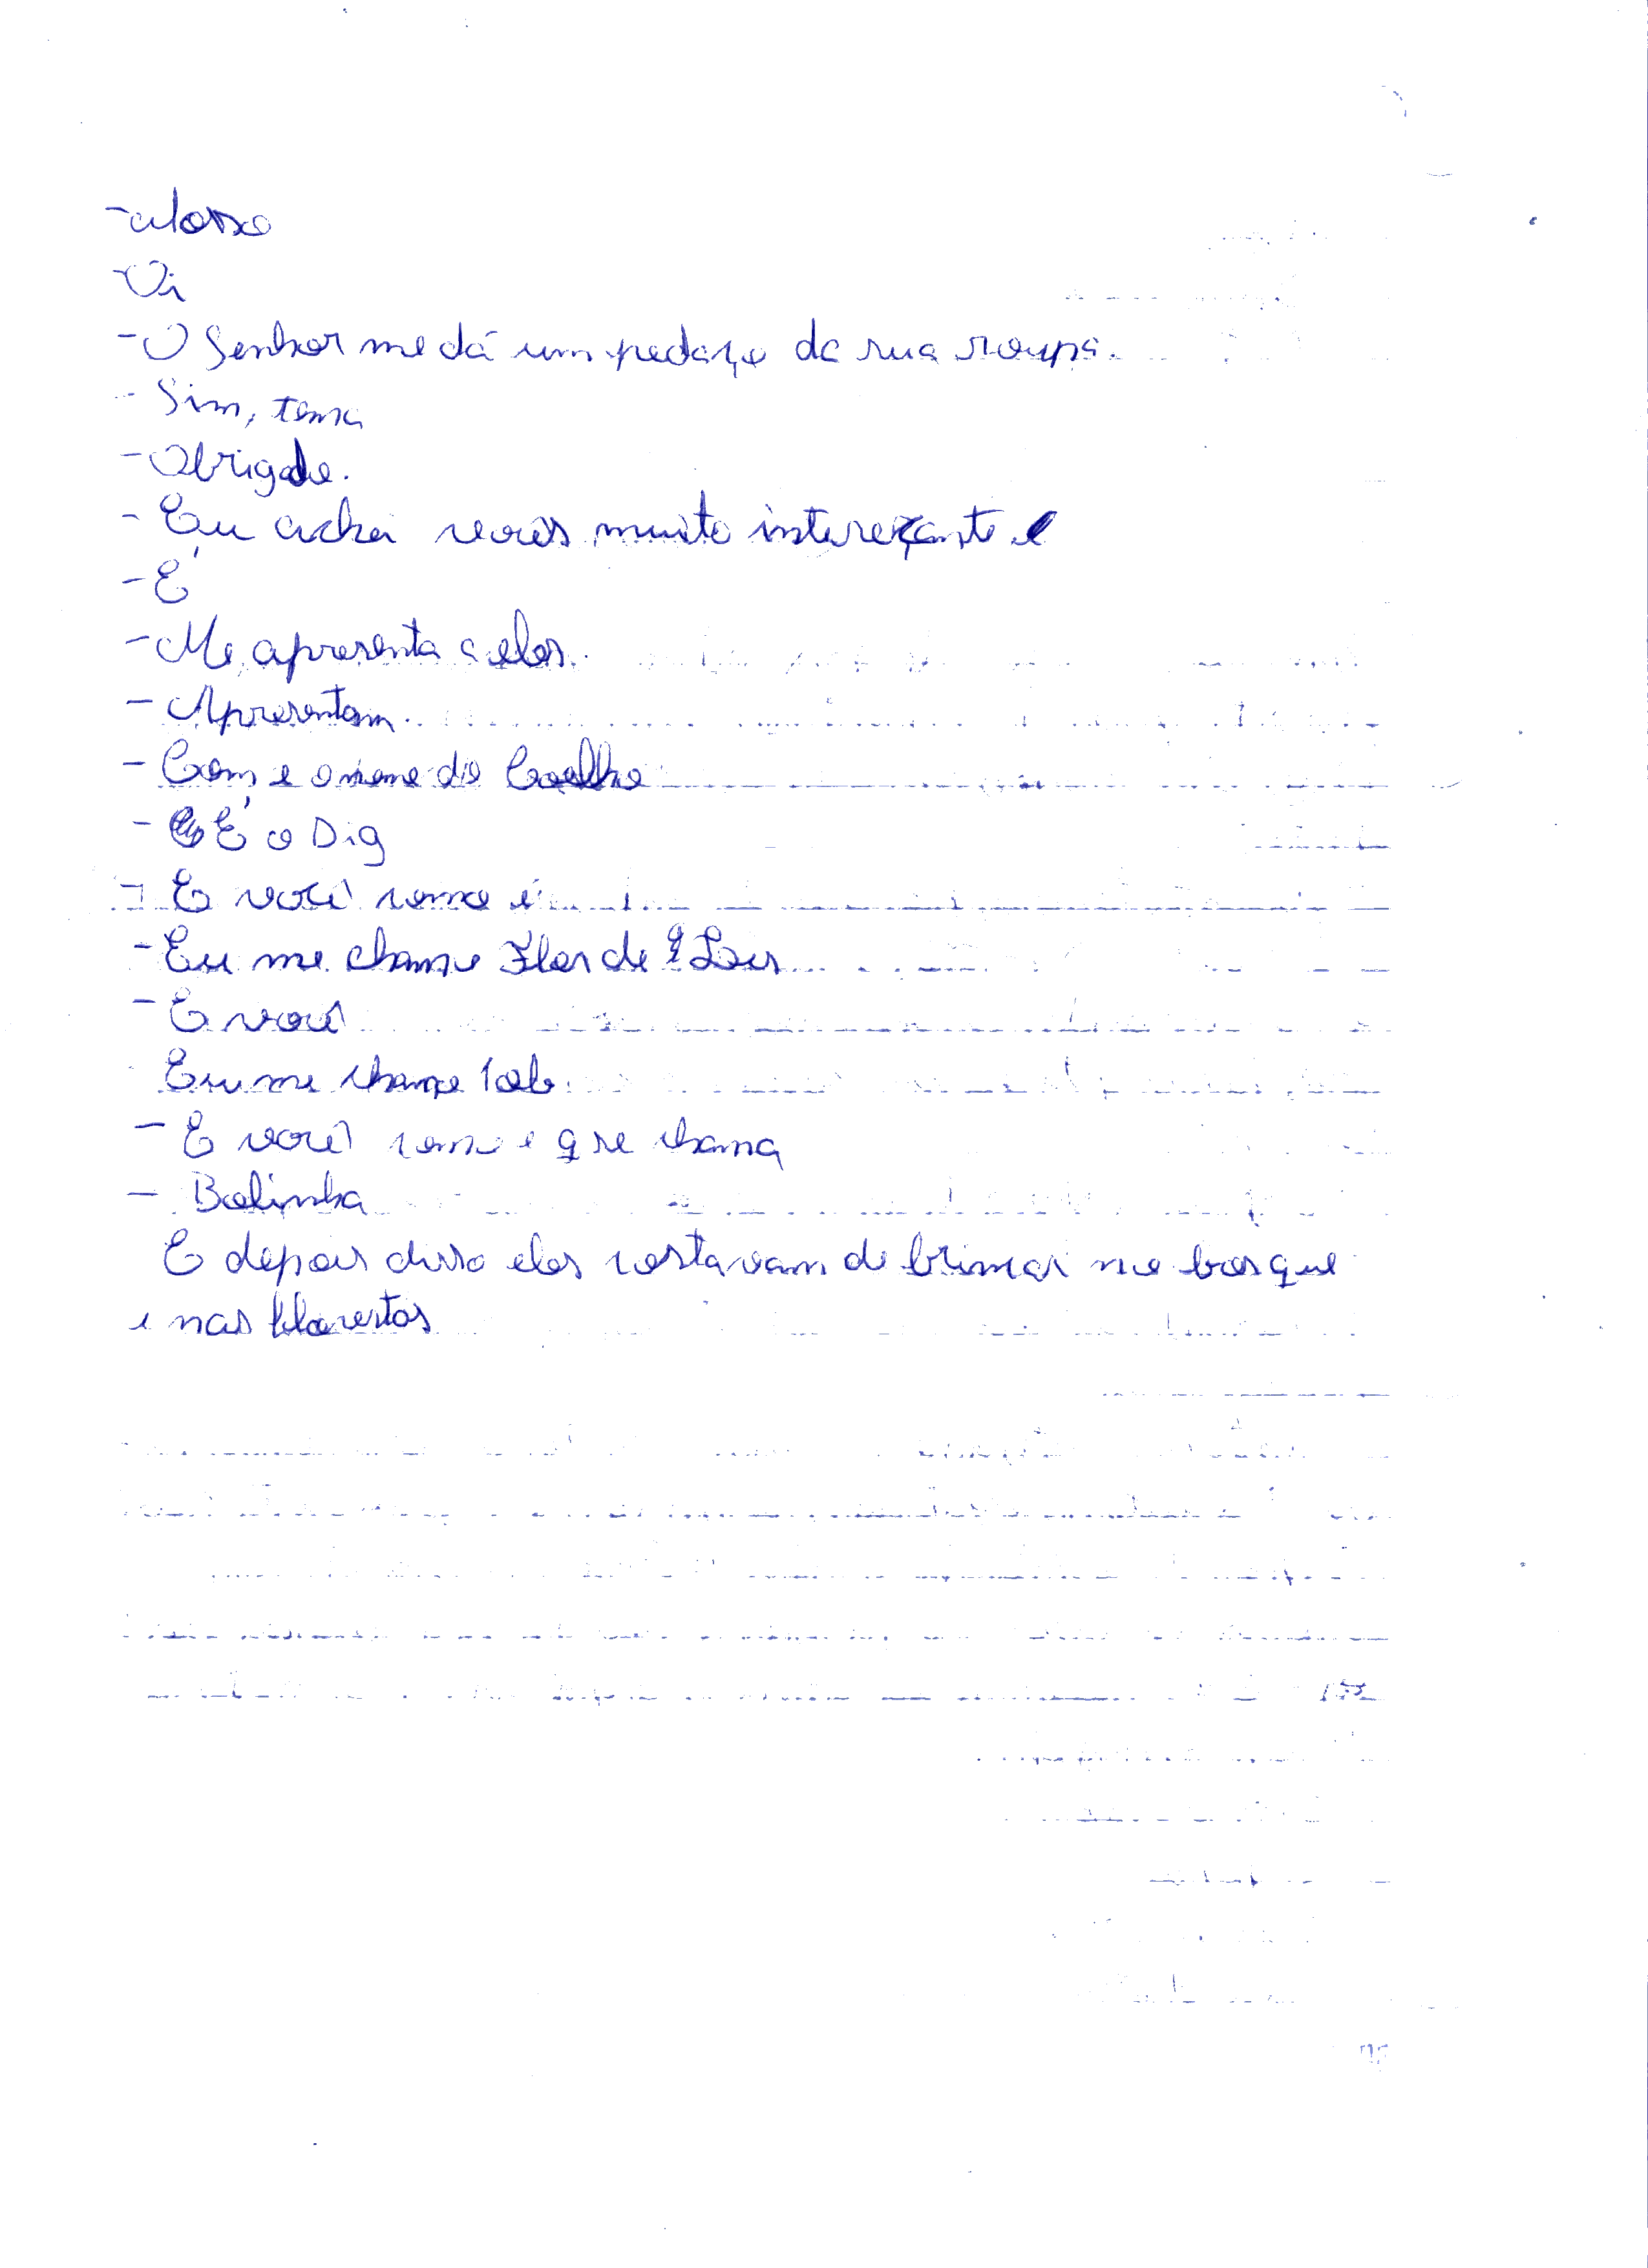 - Nossa
- Oi
- O Senhor me dá um pedaço da sua roupa.
- Sim, toma
- Obrigado.
- Eu achei vocês muito intereçante
- É
- Me apresenta a eles.
- Apresentam.
- Com e o nome do Coelho
- É o Dig
- E você como é
- Eu me chamo Flor de Lis
- E você
Eu me chamo
- E você como e q se chama
- Bolinha
E depois disso eles costavam de brincar no bosque
e nas florestas